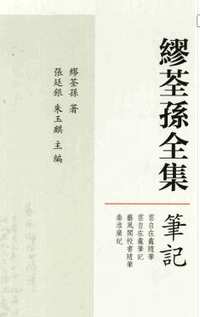 繆荃孫全集
筆記
繆荃孫 著
張廷銀 朱玉麒 主編
雲自在龕隨筆
雲自在龕筆記
藝風閣校書隨筆
秦淮廣紀